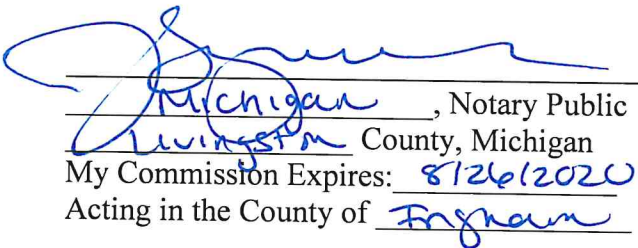 Michigan, Notary Public
Livingston County, Michigan
My Commission Expires: 8/26/2020
Acting in the County of Ingham